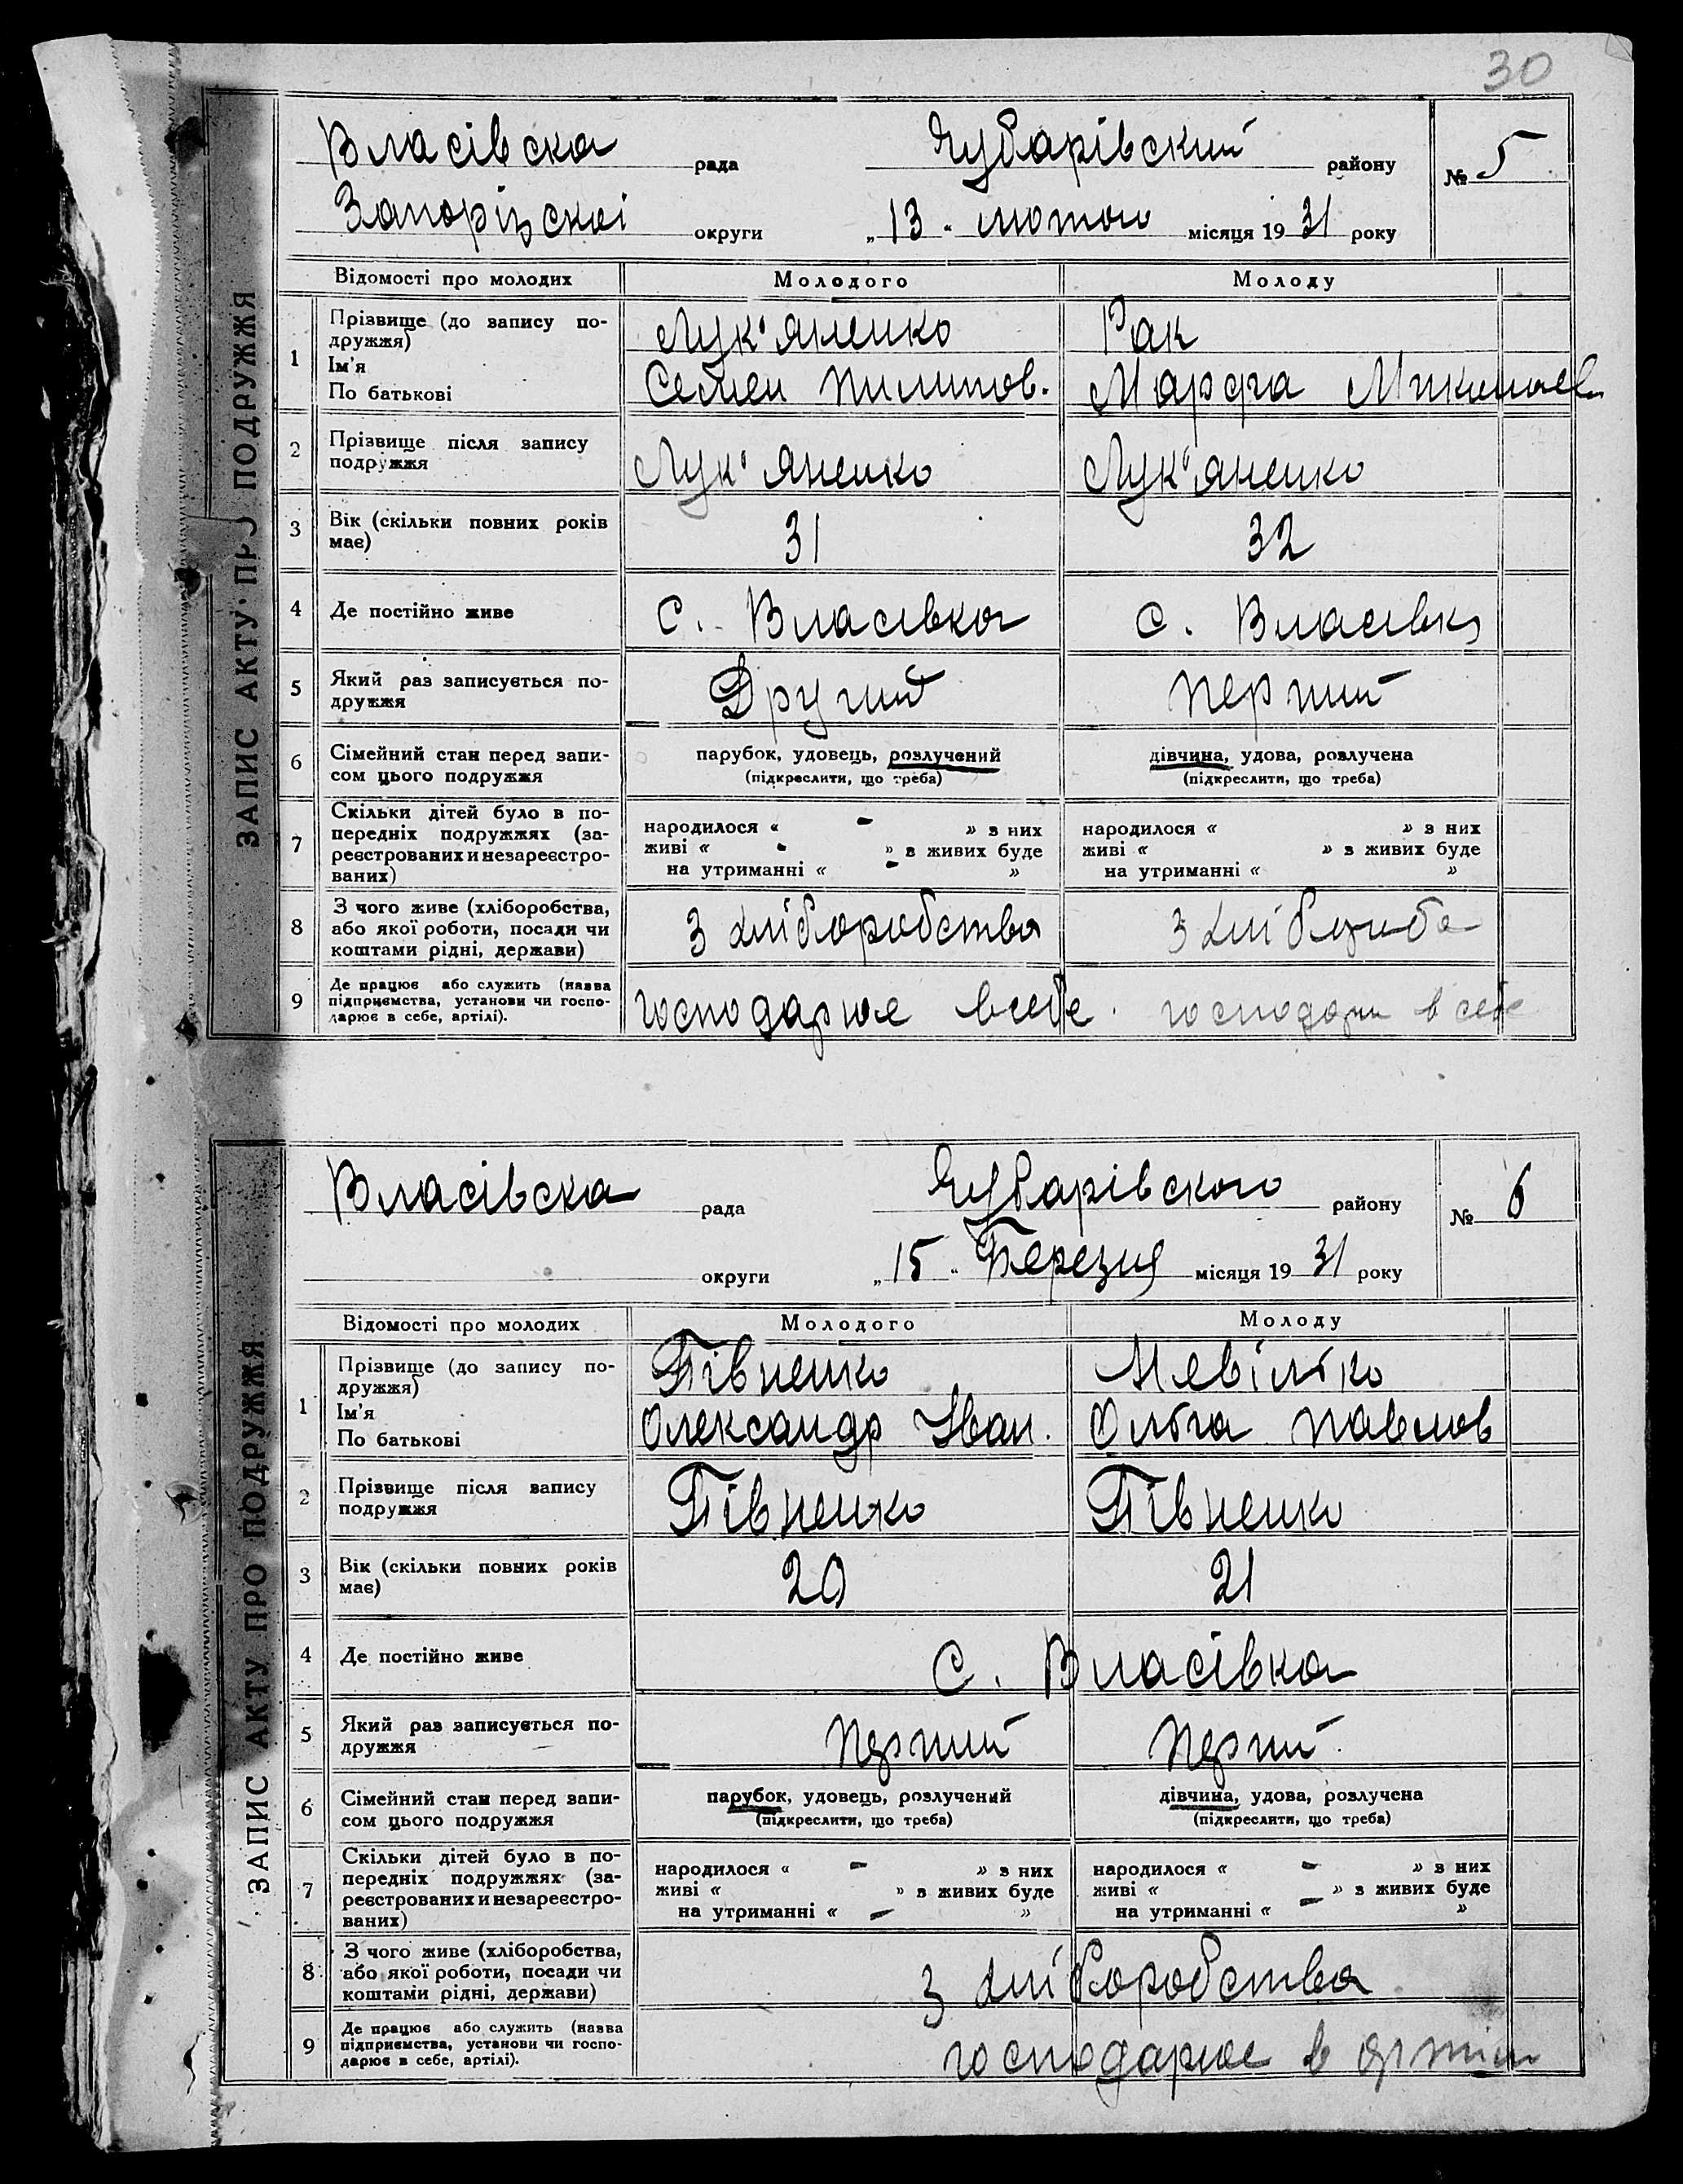 30
ЗАПИС АКТУ ПРО ПОДРУЖЖЯ
Власівска рада Чубарівский району № 5
Запоріцскоі округи „13" лютого місяця 1931 року
Відомості про молодих Молодого Молоду
1 Прізвище (до запису по-
дружжя) Лук'яненко Рак
Ім'я
По батькові Семен Пилипов. Марфа Миколаев
2 Прізвище після запису
подружжя Лук'яненко Лук'яненко
3 Вік (скільки повних років
має) 31 32
4 Де постійно живе с. Власівка с. Власівка
5 Який раз записується по-
дружжя Другий перший
6 Сімейний стан перед запи-
сом цього подружжя парубок, удовець, розлучений дівчина, удова, розлучена
(підкреслити, що треба) (підкреслити, що треба)
7 Скільки дітей було в по-
передніх подружжях (за-
реєстрованих и незареєстро-
ваних)
народилося « - » з них народилося « » з них
живі « - » з живих буде живі « » з живих буде
на утриманні « - » на утриманні « »
8 З чого живе (хліборобства,
або якої роботи, посади чи
коштами рідні, держави) З хліборобства З
9 Де працює або служить (назва
підприємства, установи чи госпо-
дарює в себе, артілі). господарює в себе. господарює в себе
ЗАПИС АКТУ ПРО ПОДРУЖЖЯ
Власівска рада Чубарівского району № 6
округи „15" Березня місяця 1931 року
Відомості про молодих Молодого Молоду
1 Прізвище (до запису по-
дружжя) Півненко Невілько
Ім'я
По батькові Олександр Іван. Ольга Павлов
2 Прізвище після запису
подружжя Півненко Півненко
3 Вік (скільки повних років
має) 20 21
4 Де постійно живе с. Власівка
5 Який раз записується по-
дружжя перший перший
6 Сімейний стан перед запи-
сом цього подружжя парубок, удовець, розлучений дівчина, удова, розлучена
(підкреслити, що треба) (підкреслити, що треба)
7 Скільки дітей було в по-
передніх подружжях (за-
реєстрованих и незареєстро-
ваних)
народилося « - » з них народилося « - » з них
живі « » з живих буде живі « » з живих буде
на утриманні « - » на утриманні « - »
8 З чого живе (хліборобства,
або якої роботи, посади чи
коштами рідні, держави) З хліборобства
9 Де працює або служить (назва
підприємства, установи чи госпо-
дарює в себе, артілі). господарює в артіли